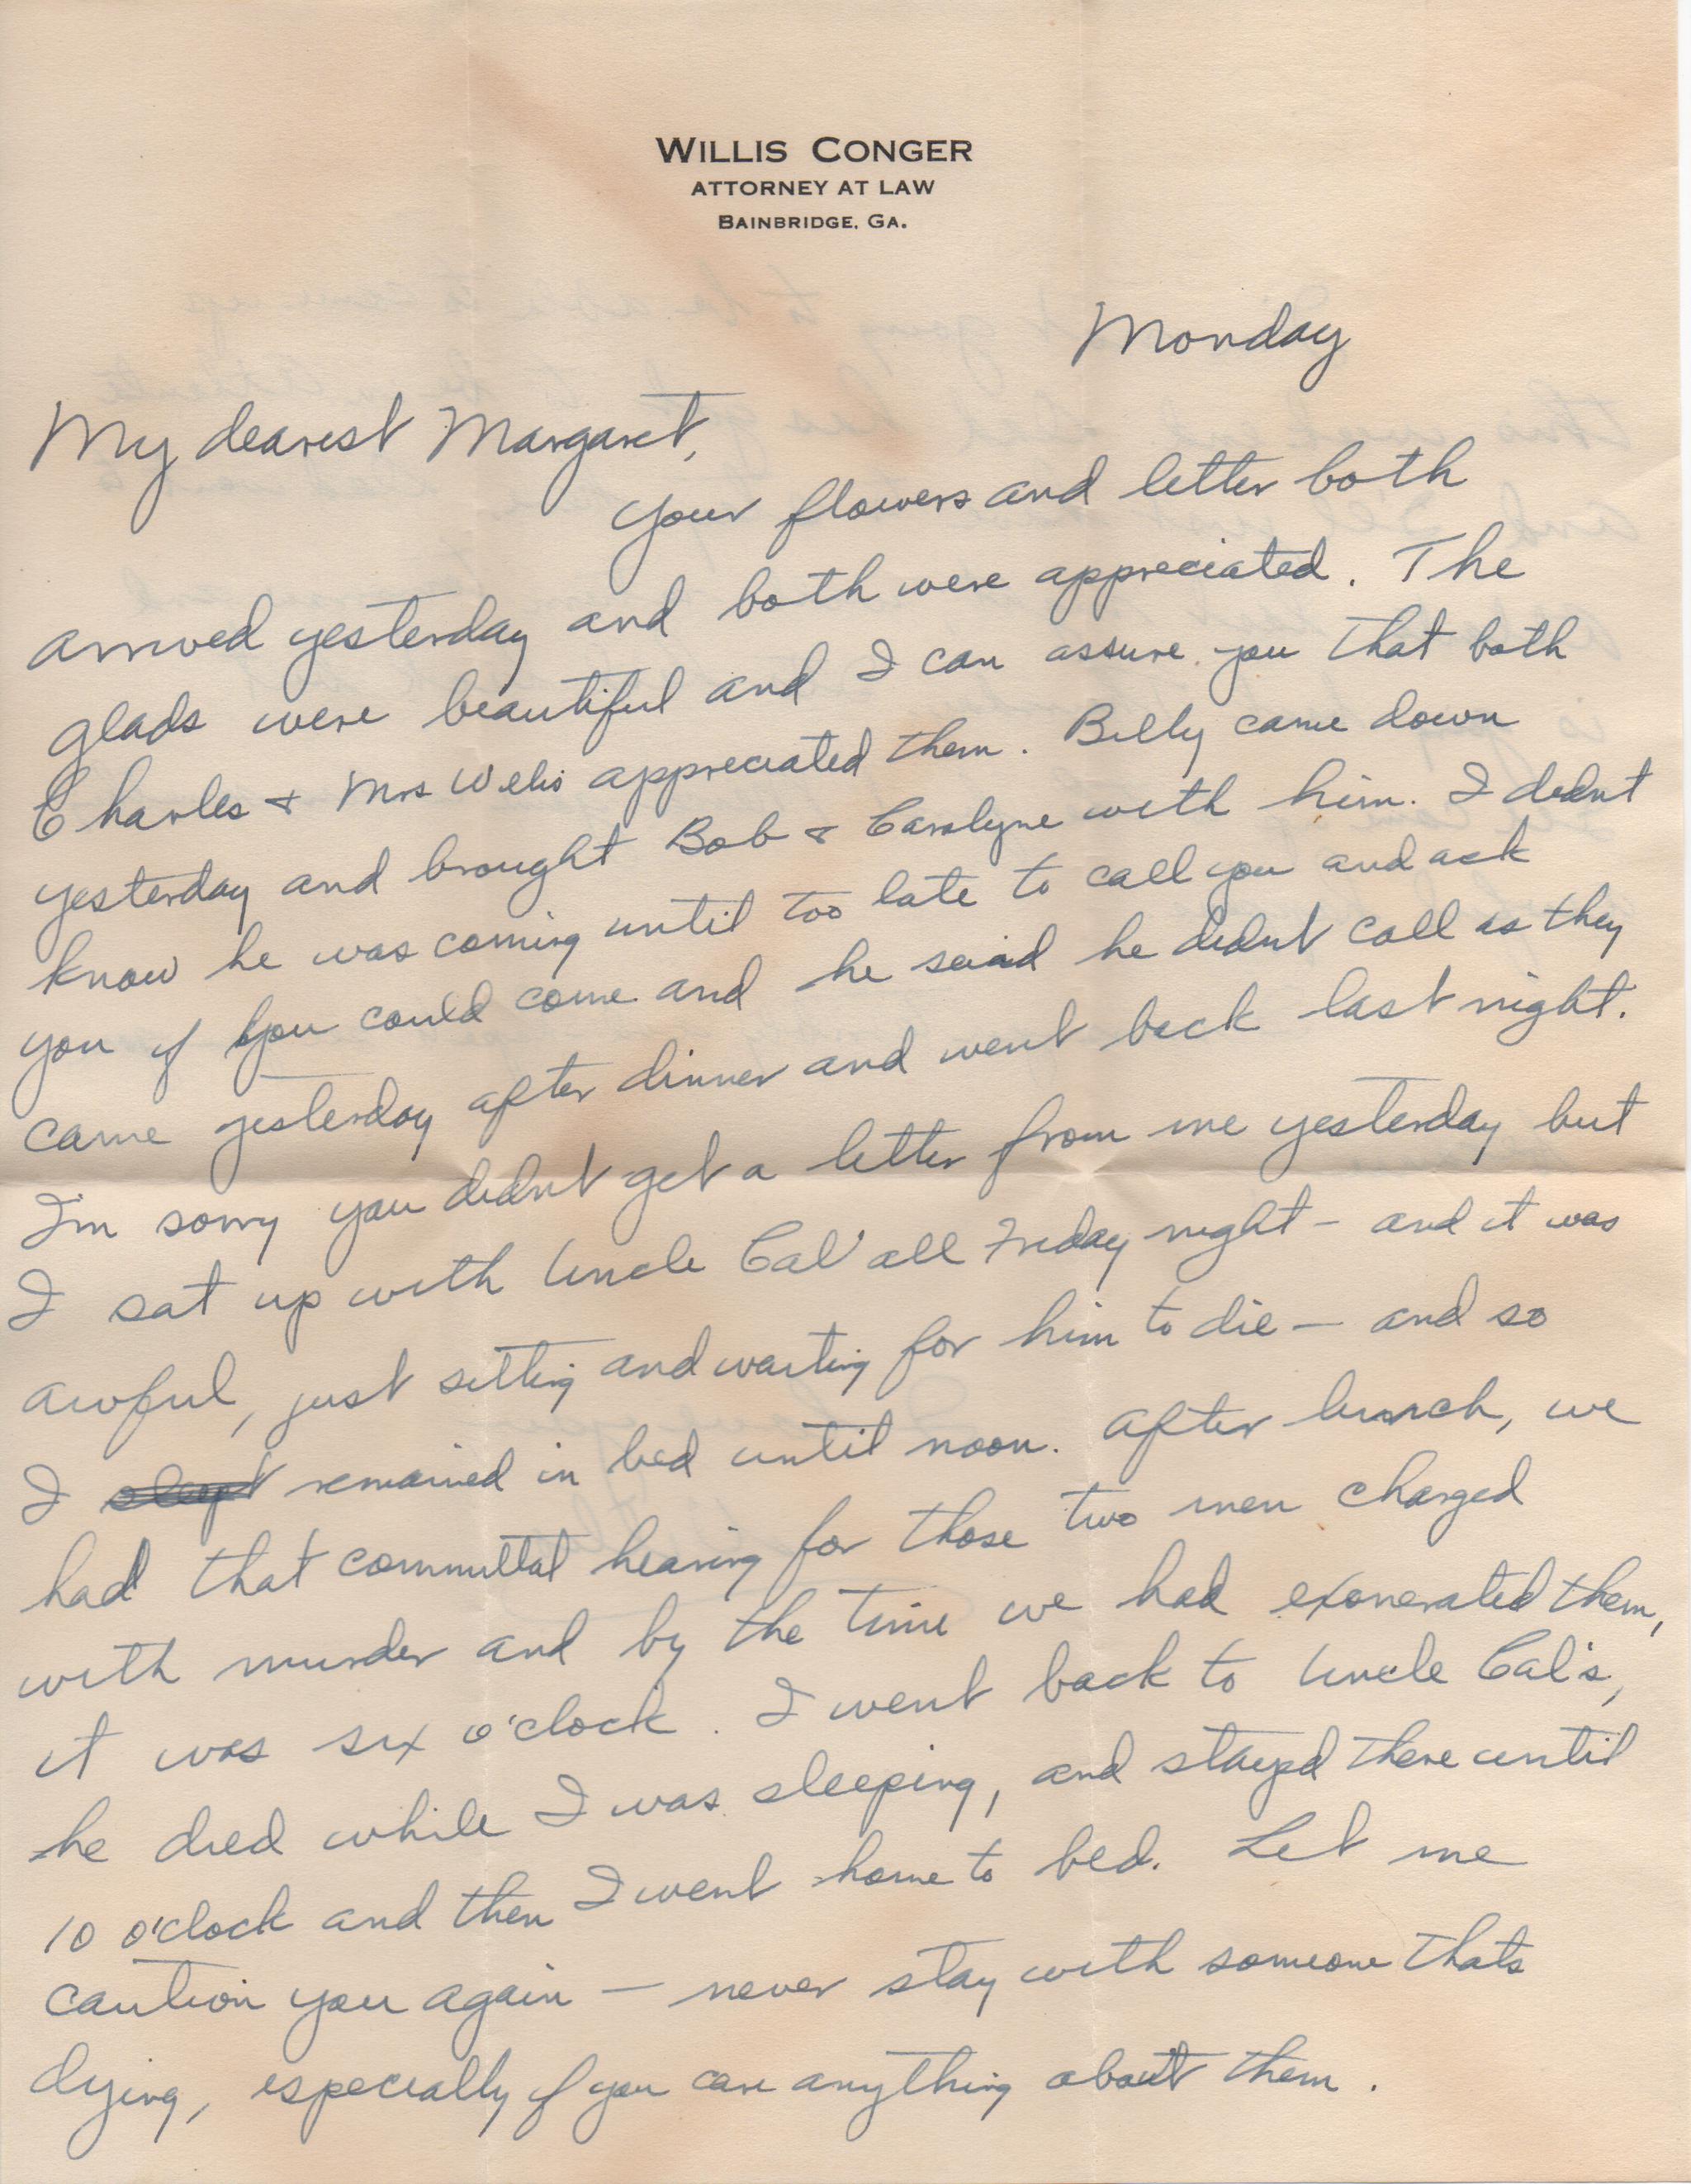 WILLIS CONGER
ATTORNEY AT LAW
BAINBRIDGE, GA.
Monday
My dearest Margaret,
Your flowers and letter both
arrived yesterday and both were appreciated. The
glads were beautiful and I can assure you that both
Charles & Mrs Welis appreciated them. Billy came down
yesterday and brought Bob & Carolyne with him. I didnt
know he was coming until too late to call you and ask
you if you could come and he said he didnt call as they
came yesterday after dinner and went back last night.
I'm sorry you didnt get a letter from me yesterday but
I sat up with Uncle Cal all Friday night - and it was
awful, just sitting and waiting for him to die - and so
I slept remained in bed until noon. After lunch, we
had that committal hearing for those two men charged
with murder and by the time we had exonerated them,
it was six o'clock. I went back to Uncle Cal's,
he died while I was sleeping, and stayed there until
10 o'clock and then I went home to bed. Let me
caution you again - never stay with someone thats
dying, especially if you care anything about them.